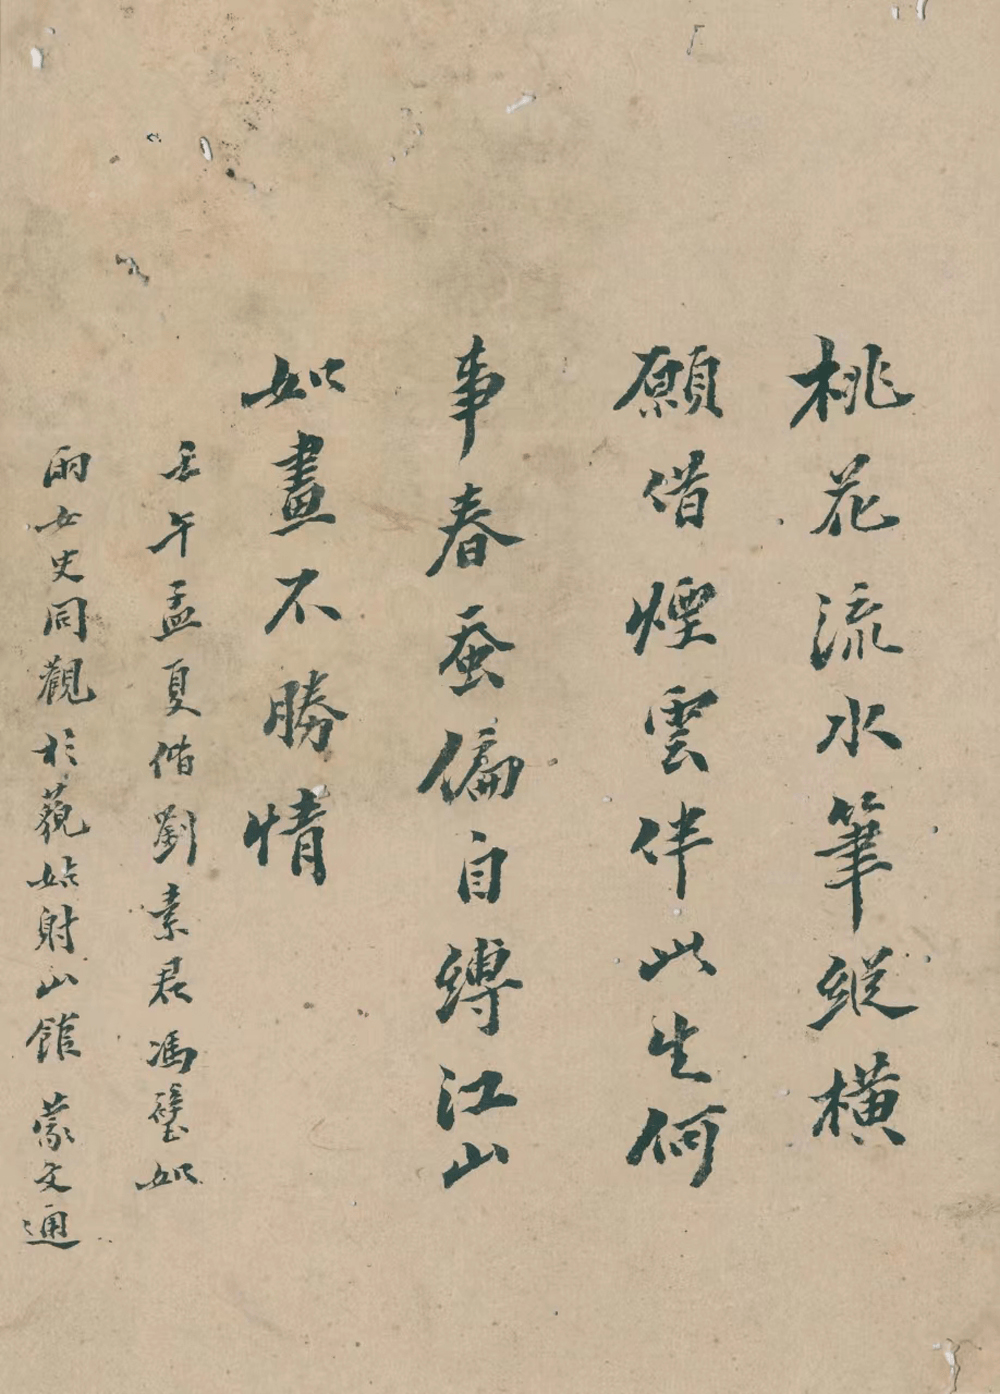 桃花流水筆縱橫
願借煙雲伴此生何
事春蚕偏自縛江山
如畫不勝情
壬午孟夏偕劉素君馮璧如
兩女史同觀於藐姑射山館 蒙文通